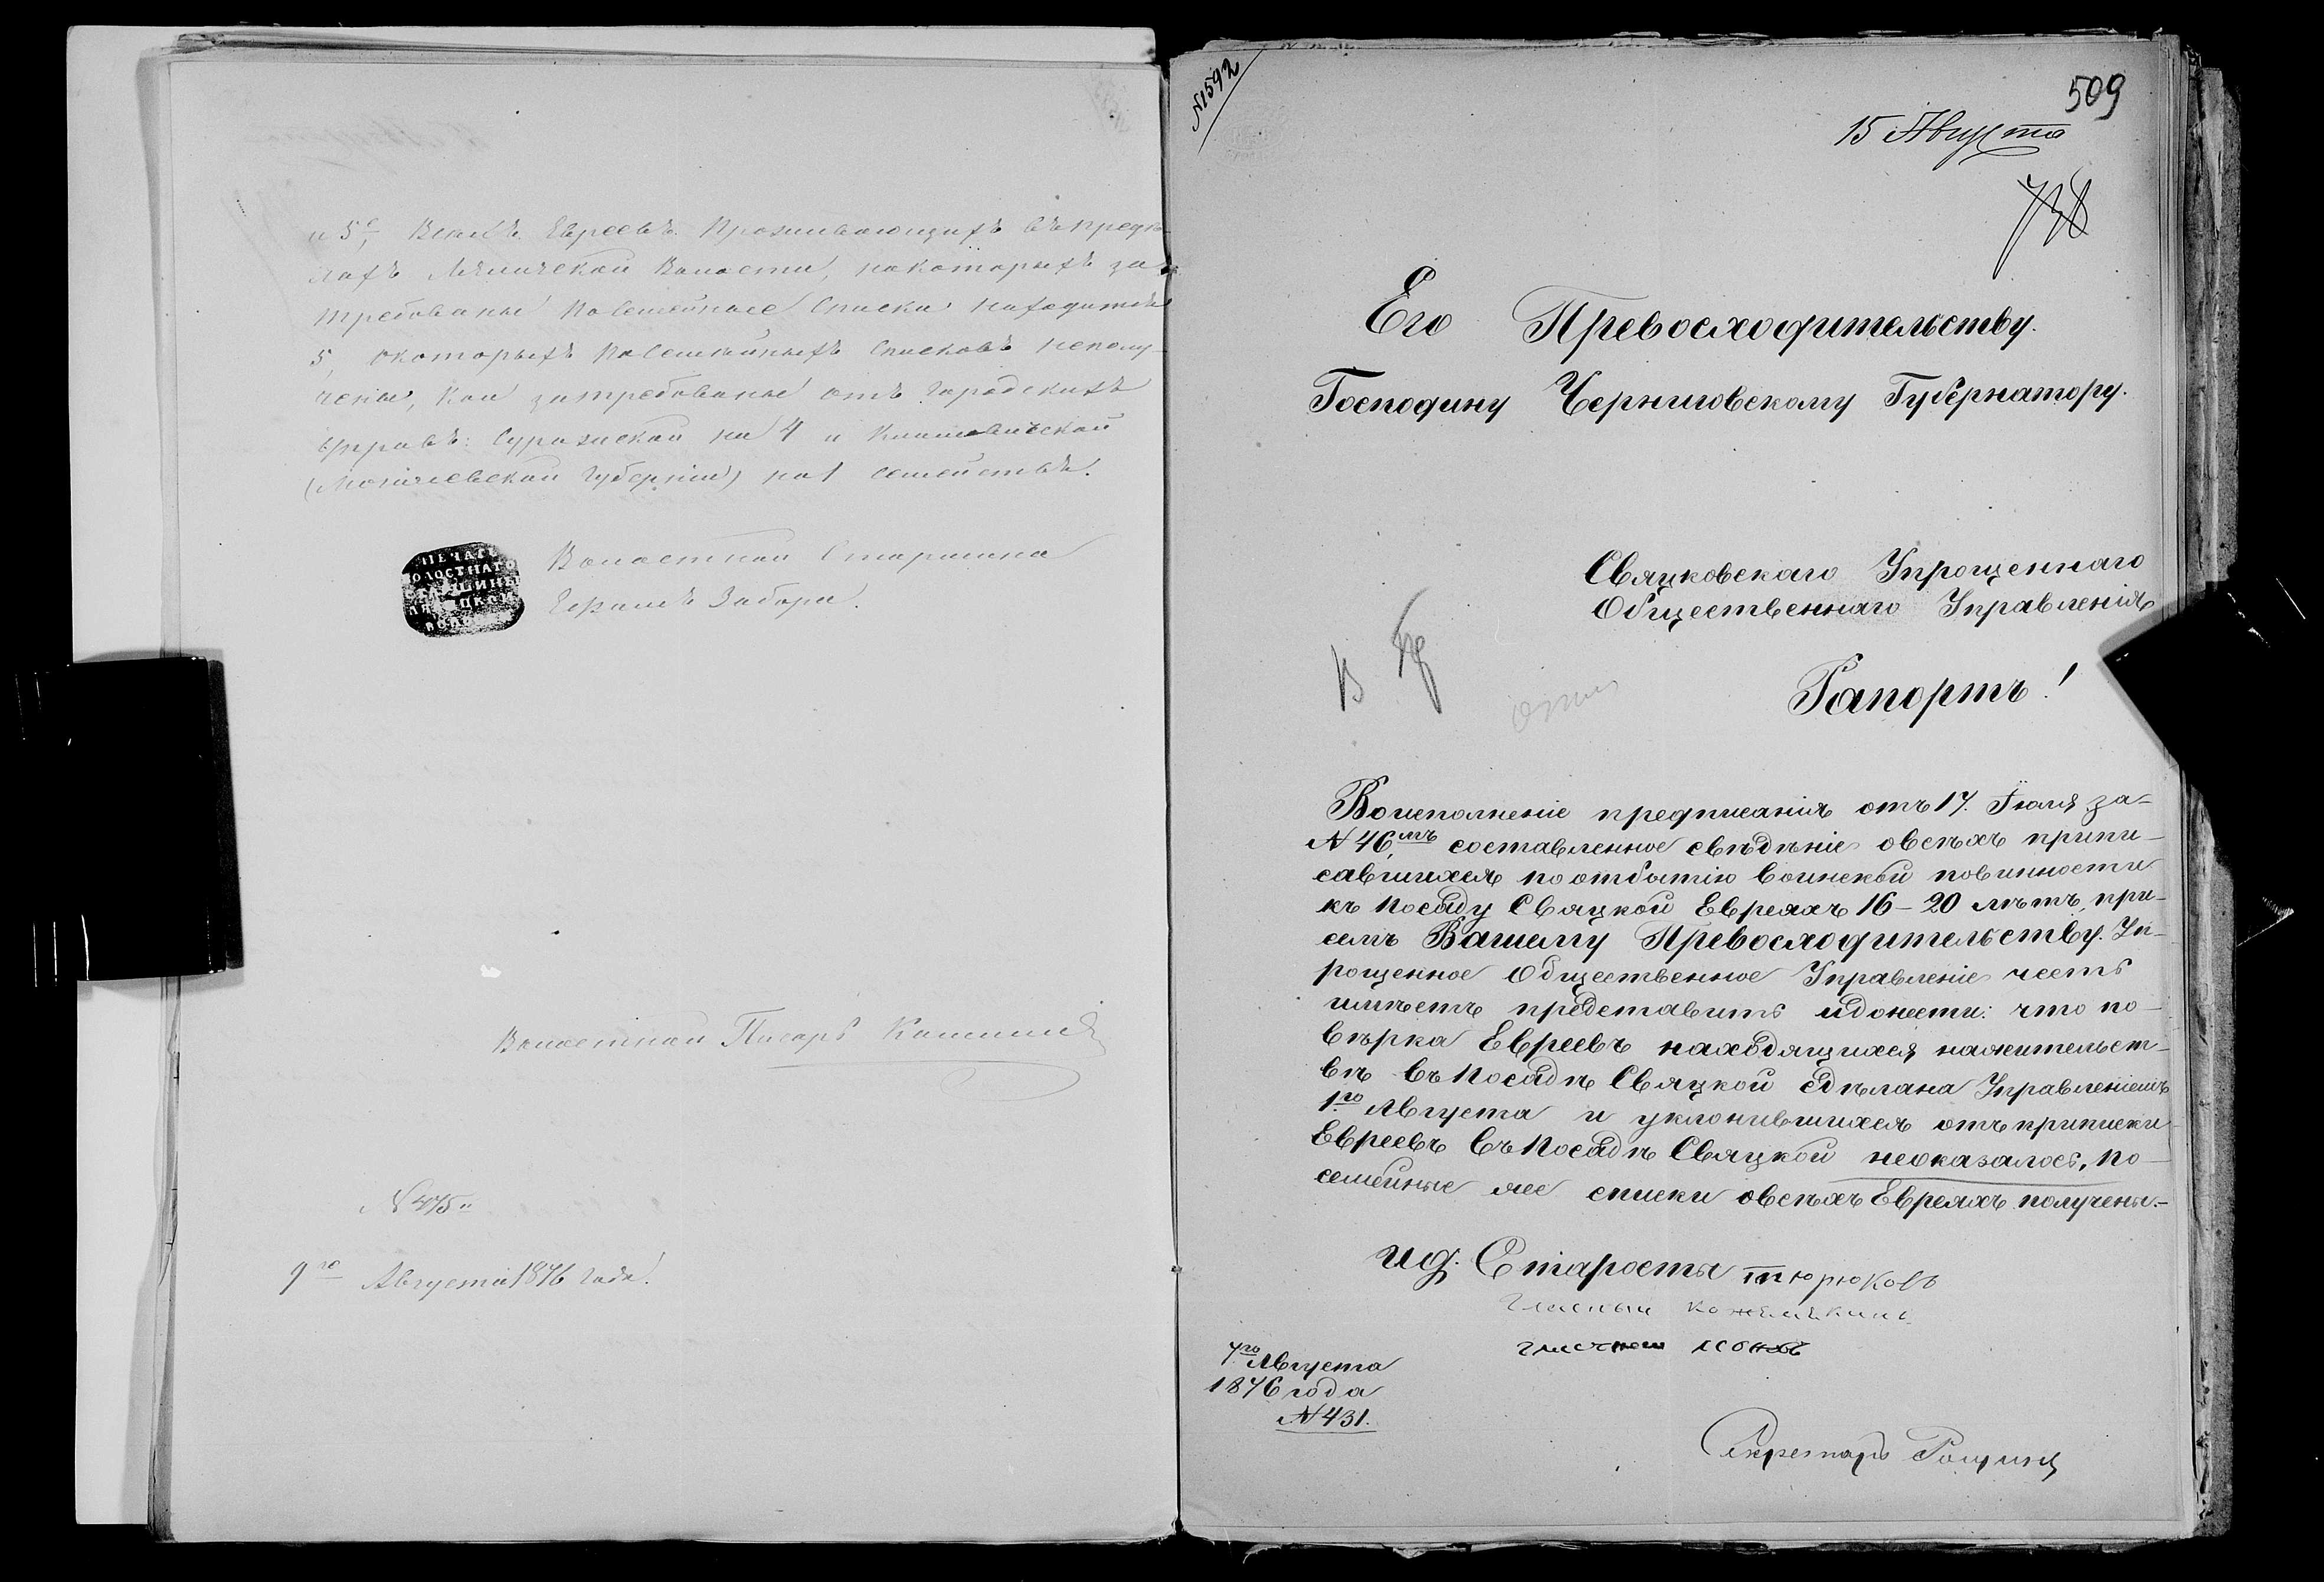 и 5е, Всехъ Евреевъ Проживающихъ въ предѣ-
лахъ Лялической Волости, на которыхъ за-
требованы Посемейные Списки находится
5, о которыхъ Посемейныхъ Списковъ неполу-
чены, кои затребованы отъ Городскихъ
Управъ: Суражской на 4 и Климовичской
(Могилевской Губерніи) на 1 семействѣ.
ПЕЧАТЬ
ВОЛОСТНАГО
СТАРШИНЫ
Волостной Старшина
Забора.
Волостной Писарь
№ 475
9го Августа 1876 года.
№ 1592
509
15 Августа
Его Превосходительству.
Господину Черниговскому Губернатору.
Свяцковскаго Упрощеннаго
Общественнаго Управленія
Рапортъ!
Воисполненіе предписанія отъ 17. Іюля за-
№ 46мъ составленное свѣдѣніе овсѣхъ припи-
савшихся по отбытію воинской повинности
къ Посаду Свяцкой Евреяхъ 16-20 лѣтъ, при-
семъ Вашему Превосходительству. Уп-
рощенное Общественное Управленіе честь
имѣетъ представить идонести: что по-
вѣрка Евреевъ находящихся нажительст-
вѣ въ Посадѣ Свяцкой сдѣлана Управленіемъ
1го Августа и уклонившихся отъ приписки
Евреевъ въ Посадѣ Свяцкой неоказалось, По-
семейные же списки овсѣхъ Евреяхъ получены.-
ид. Старосты тюрюковъ
Гласный кожемякинъ
гласной
7го Августа
1876 года
№ 431.
Секретарь Рощинъ